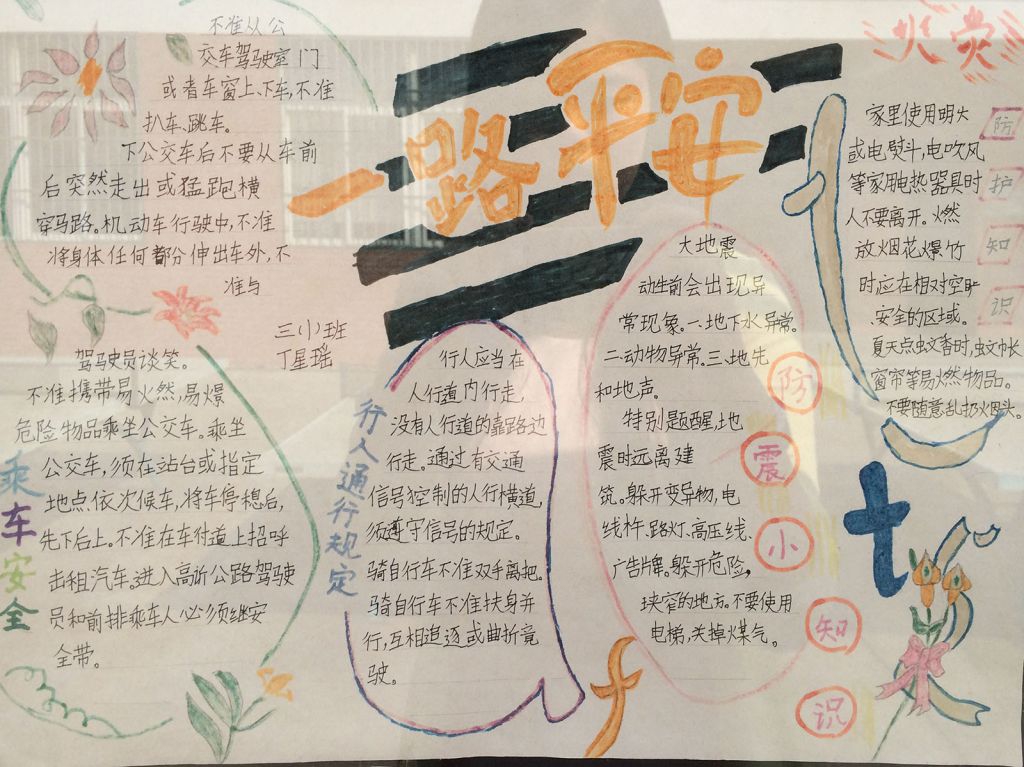 一路平安
不准从公
交车驾驶室门
或者车窗上、下车,不准
扒车、跳车。
下公交车后不要从车前
后突然走出或猛跑横
穿马路。机动车行驶中,不准
将身体任何部分伸出车外,不
准与
三(1)班
丁星瑶
乘车安全
驾驶员谈笑。
不准携带易火燃,易爆
危险物品乘坐公交车。乘坐
公交车,须在站台或指定
地点依次候车,将车停稳后,
先下后上。不准在车行道上招呼
出租汽车。进入高速公路驾驶
员和前排乘车人必须继安
全带。
行人通行规定
行人应当在
人行道内行走,
没有人行道的靠路边
行走。通过有交通
信号控制的人行横道,
须遵守信号的规定。
骑自行车不准双手离把。
骑自行车不准扶身并
行,互相追逐或曲折竞
驶。
防震小知识
大地震
动生前会出现异
常现象。一、地下水异常。
二、动物异常。三、地光
和地声。
特别题醒,地
震时远离建
筑。躲开变异物,电
线杵、路灯、高压线、
广告牌。躲开危险,
狭窄的地方。不要使用
电梯,关掉煤气。
火灾
防护知识
家里使用明火
或电熨斗,电吹风
等家用电热器具时
人不要离开。燃
放烟花爆竹
时应在相对空旷
、安全的区域。
夏天点蚊香时,蚊巾长
窗帘等易燃物品。
不要随意乱扔火因头。
f
t